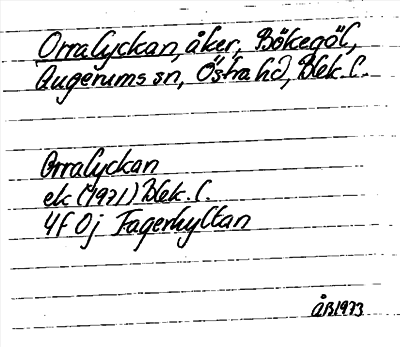 Orralyckan, åker, Bökegöl,
Augerums sn, Östra hd, Blek. l.
Orralyckan
ek (1971) Blek. l.
4f 0j Fagerhyltan
ÅB1973